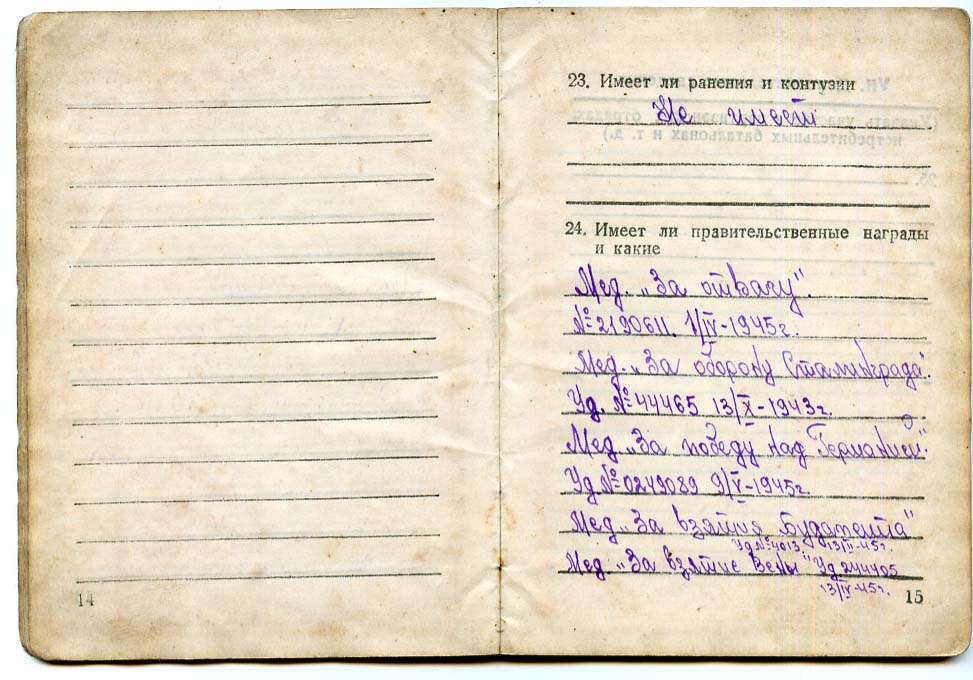 23. Имеет ли ранения и контузии
Не имеет
24. Имеет ли правительственные награды
и какие
Мед. „За отвагу".
№ 2190611 1/IV-1945г.
Мед. „За оборону Сталинграда".
Уд. №44465 13/X-1943г.
Мед „За победу над Германией".
Уд №0249089 9/V-1945г.
Мед „За взятия Будапешта"
Уд №4013 13/II-45г.
Мед. „За взятие Вены" Уд 244405
13/IV-45г.
14
15